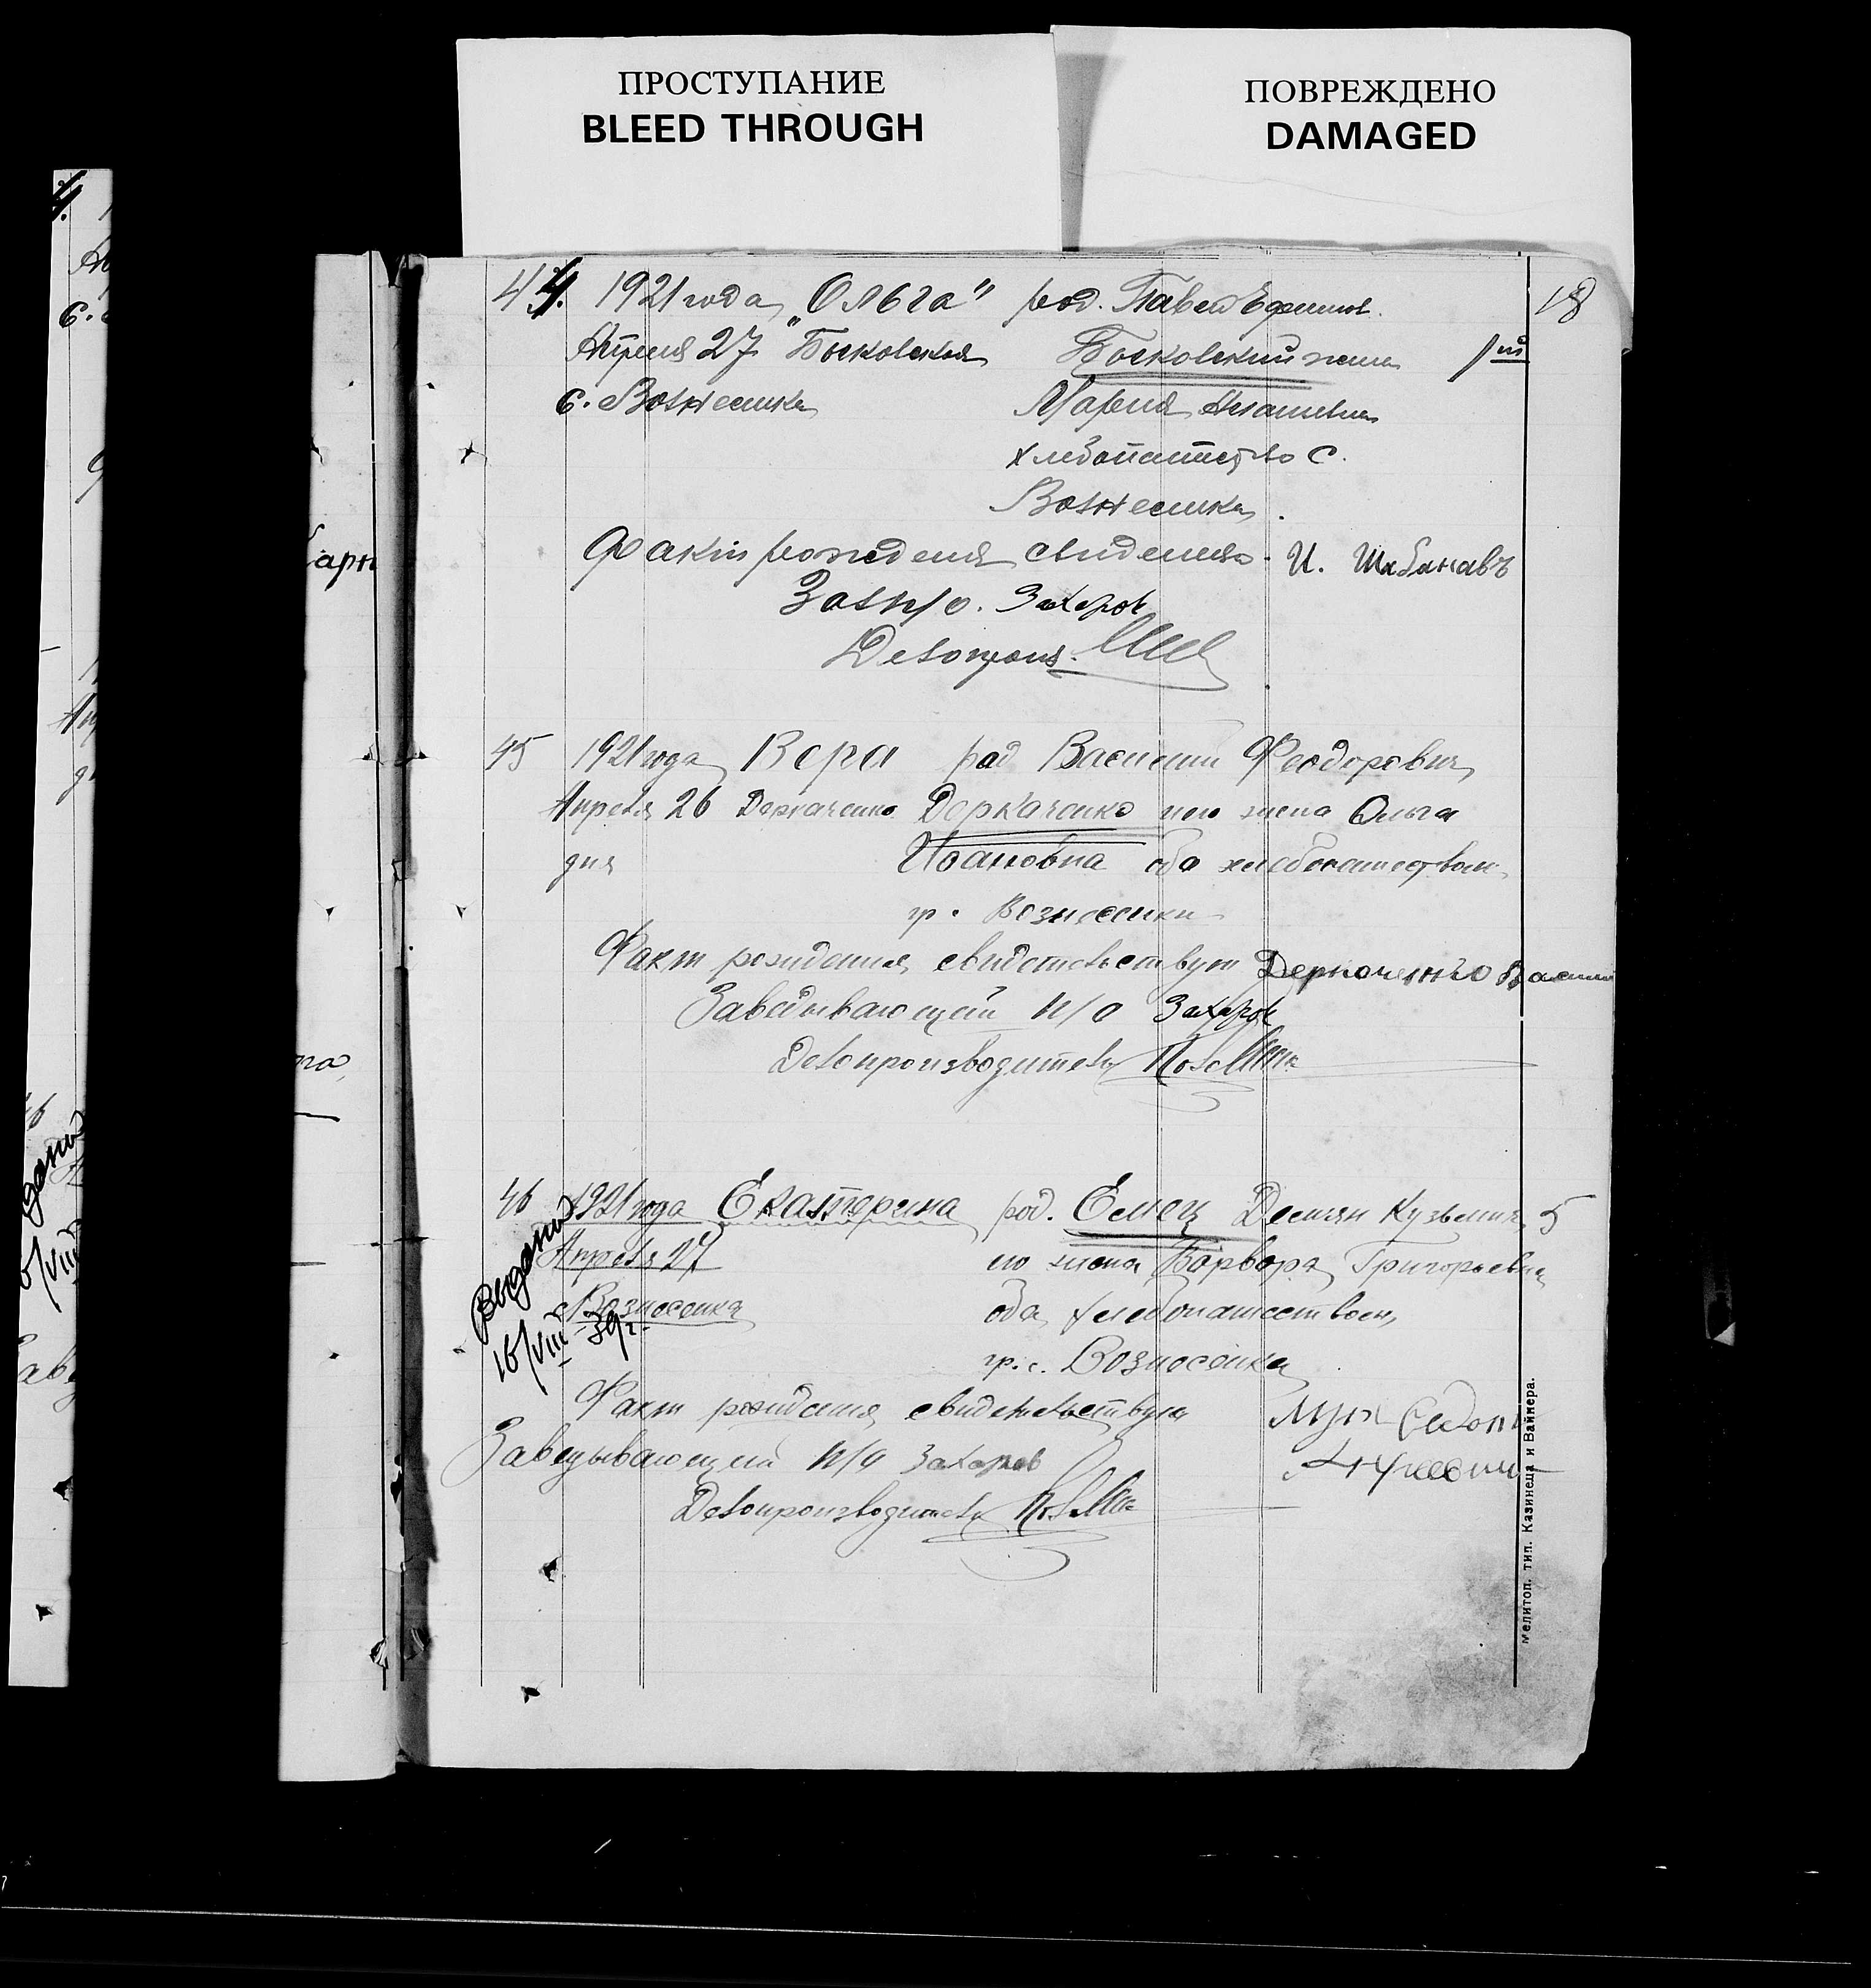 ПРОСТУПАНИЕ
BLEED THROUGH
ПОВРЕЖДЕНО
DAMAGED
18
44. 1921 года „Ольга" род. Павел Ефимов.
Апреля 27 Боковская Боковский жена 1й
с. Вознесенка Мария
хлебопашество с.
Вознесенка.
Факт рождения И. Шабановъ
Зав п/о. Захаров
Делопроиз.
45 1921 года Вера род Василий Феодорович
Апреля 26 Деркаченко Деркаченко его жена Ольга
дня Ивановна оба хлебопашеством
гр. Вознесенки
Факт рождения свидетельствую Деркоченко Василий
Заведывающий п/о Захаров
Делопроизводитель
46 1921 года Екатерина род. Емец Демян Кузьмич 5
Апреля 27 его жена Варвора Григорьевна
с Вознесенка оба хлебопашеством,
гр. с. Вознесенка
Выдани
16/VIII 39г.
Факт рождения свидетельствую
Заведывающий п/о Захаров
Делопроизводитель
Мелитоп. тип. Казинеца и Вайнера.
арн